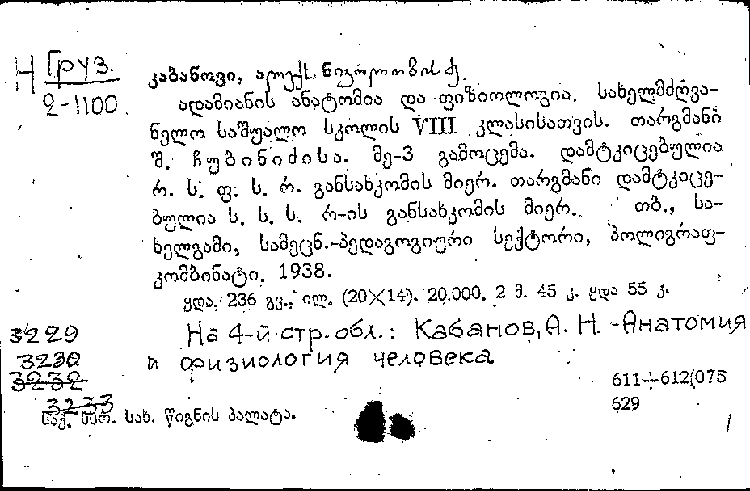 Н Груз.
2-1100
კაბანოვი, ალექს. ნიკოლოზის ძე.
ადამიანის ანატომია და ფიზიოლოგია. სახელმძღვა-
ნელო საშუალო სკოლის VIII კლასისათვის. თარგმანი
შ. ჩუბინიძისა. მე-3 გამოცემა. დამტკიცებულია
რ. ს. ფ. ს. რ. განსახკომის მიერ. თარგმანი დამტკიცე-
ბულია ს. ს. ს. რ-ის განსახკომის მიერ. თბ., სა-
ხელგამი, სამეცნ.-პედაგოგიური სექტორი, პოლიგრაფ-
კომბინატი, 1938.
ყდა, 236 გვ., ილ. (20×14). 20.000. 2 მ. 45 კ. ყდა 55 კ.
3229 На 4-й стр. обл.: Кабанов, А. Н. -Анатомия
3230 и физиология человека
3232
611+612(075
3233
529
საქ. სსრ. სახ. წიგნის პალატა.